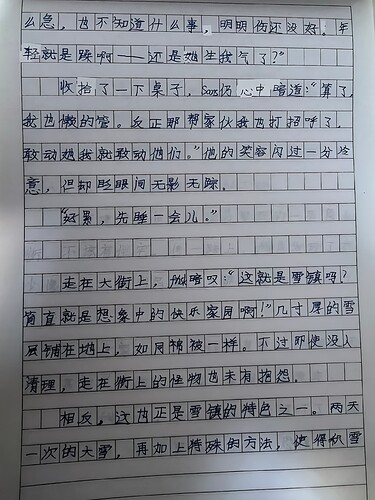 么急，也不知道什么事，明明伤还没好。年
轻就是躁啊——还是她生我气了？”
收拾了一下桌子，Sans仍心中暗道：“算了，
我也懒的管。反正那帮家伙我也打招呼了，
敢动她我就敢动他们。”他的笑容闪过一分冷
意，但却眨眼间无影无踪。
“好累，先睡一会儿。”
走在大街上，frisk暗叹：“这就是雪镇吗？
简直就是想象中的快乐家园啊！”几寸厚的雪
层铺在地上，如同棉被一样。不过即使没人
清理，走在街上的怪物也未有抱怨。
相反，这也正是雪镇的特色之一。两天
一次的大雪，再加上特殊的方法，使得积雪